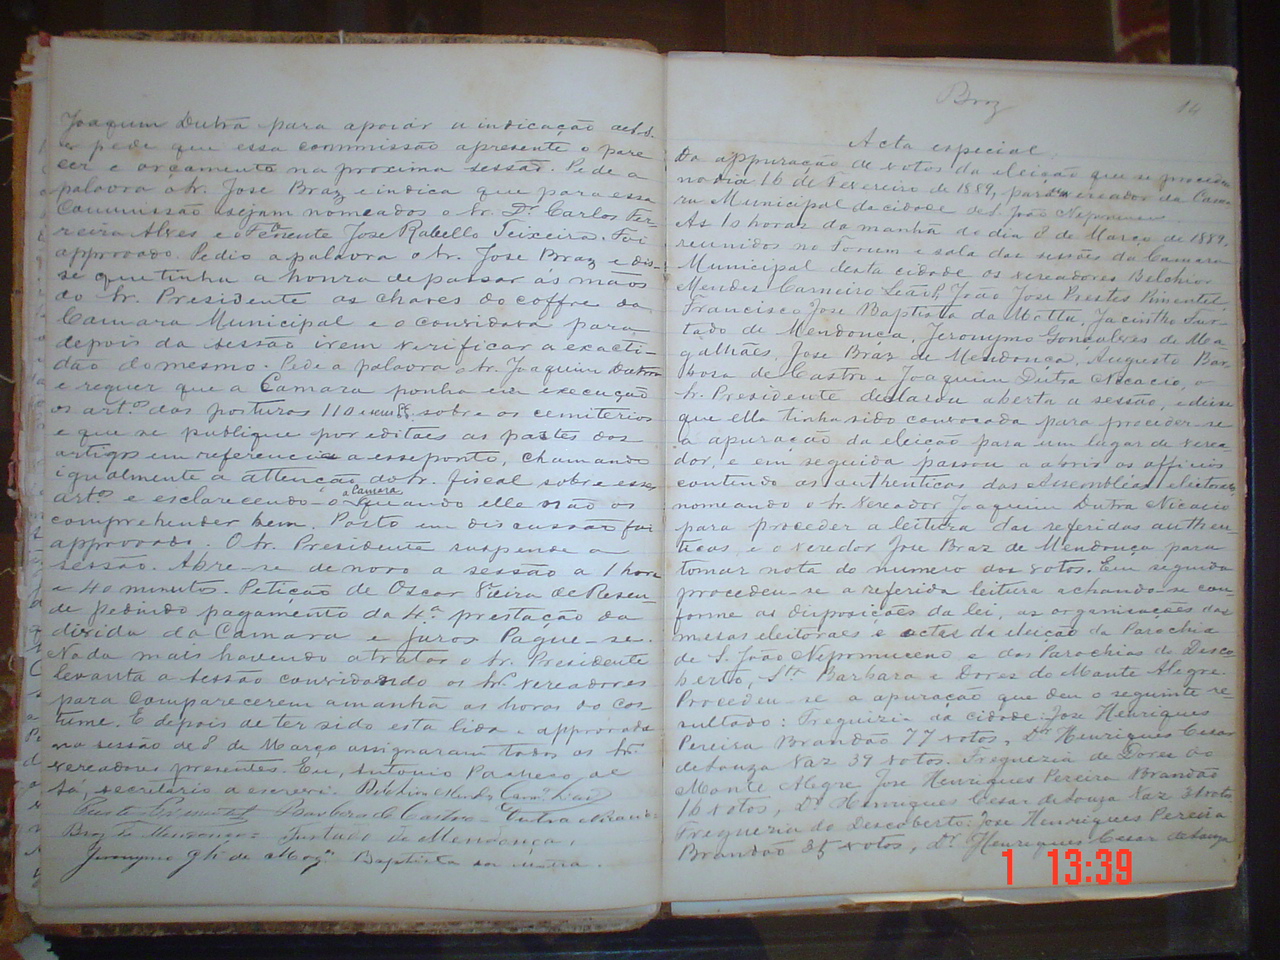 Joaquim Dutra para apoiar a indicação
e pede que essa commissão apresente o pare
cer e orçamento na proxima sessão. Pede a
palavra o Sr. Jose Braz e indica que para essa
Commissão sejam nomeados o Sr. Dr. Carlos Fer-
reira Alves e o Tenente Jose Rabello Teixeira. Foi
approvado. Pedio a palavra o Sr. Jose Braz e dis-
se que tinha a honra de passar ás mãos
do Sr. Presidente as chaves do coffre da
Camara Municipal e o convidava para
depois da sessão irem verificar a exacti-
dão do mesmo. Pede a palavra o Sr. Joaquim Dutra
e requer que a Camara ponha em execução
os artos das posturas 110 sobre os cemiterios
e que se publique por editaes as partes dos
artigos em referencia a esse ponto, chamando
igualmente a attenção do Sr. fiscal sobre esses
artos e esclarecendo-o a Camara quando elle não os
comprehender bem. Posto em discussão foi
approvado. O Sr. Presidente suspende a
sessão. Abre-se de novo a sessão a 1 hora
e 40 minutos. Petição de Oscar Vieira de Resen-
de pedindo pagamento da 4ª prestação da
divida da Camara e juros Pague-se.
Nada mais havendo a tratar o Sr. Presidente
levanta a sessão convidando os Srs. Vereadores
para comparecerem amanhã as horas do cos-
tume. E depois de ter sido esta lida e approvada
na sessão de 8 de Março assignaram todos os Srs.
vereadores presentes. Eu, Antonio Pacheco de
Sa, secretario a escrevi. Belchior Mendes Carnro. Leão
Prestes Pimentel Barbosa de Castro Dutra Nicacio
Braz de Mendonça Furtado de Mendonça,
Jeronymo Glz de Mages Baptista da Motta.
Braz
14
Acta especial
Da appuração de votos da eleição que se procedeu
no dia 16 de Fevereiro de 1889, para vereador da Cama-
ra Municipal da cidade de S. João Nepomuceno
As 10 horas da manhã do dia 8 de Março de 1889,
reunidos no Forum e sala das sessões da Camara
Municipal desta cidade os vereadores Belchior
Mendes Carneiro Leão, João Jose Prestes Pimentel,
Francisco Jose Baptista da Motta, Jacintho Fur-
tado de Mendonça, Jeronymo Gonçalves de Ma-
galhães, Jose Braz de Mendonça, Augusto Bar-
bosa de Castro e Joaquim Dutra Nicacio, o
Sr. Presidente declarou aberta a sessão, e disse
que ella tinha sido convocada para proceder-se
a apuração da eleição para um lugar de verea-
dor, e em seguida passou a abrir os officios
contendo as authenticas das Assembléas eleitoraes
nomeando o Sr. Vereador Joaquim Dutra Nicacio
para proceder a leitura das referidas authen-
ticas, e o veredor Jose Braz de Mendonça para
tomar nota do numero dos votos. Em seguida
procedeu-se a referida leitura achando-se con-
forme as disposições da lei, as organisações das
mesas eleitoraes e actas da eleição da Parochia
de S. João Nepomuceno e das Parochias do Desco-
berto, Sta Barbara e Dores do Monte Alegre.
Procedeu-se a apuração que deu o seguinte re-
sultado: Freguezia da cidade: Jose Henriques
Pereira Brandão 77 votos, Dr. Henriques Cesar
de Souza Vaz 39 votos. Freguezia de Dores do
Monte Alegre Jose Henriques Pereira Brandão
16 votos, Dr. Henriques Cesar de Souza Vaz 31 votos
Freguezia do Descoberto: Jose Henriques Pereira
Brandão 35 votos, Dr. Henriques Cesar de Souza
1 13:39